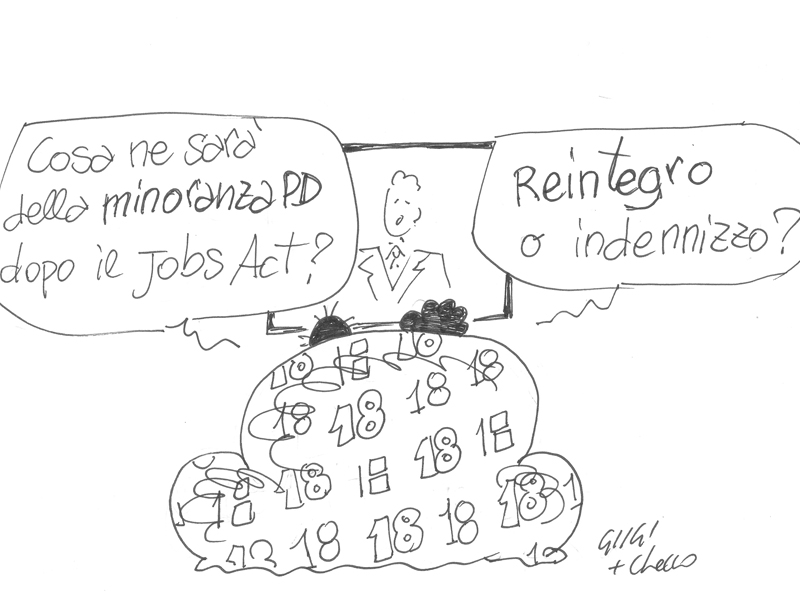 Cosa ne sarà
della minoranza PD
dopo il Jobs Act?
Reintegro
o indennizzo?
18 18 18
18 18 18 18
18 18 18 18
18 18 18 18 18
18 18 18
+ Checco